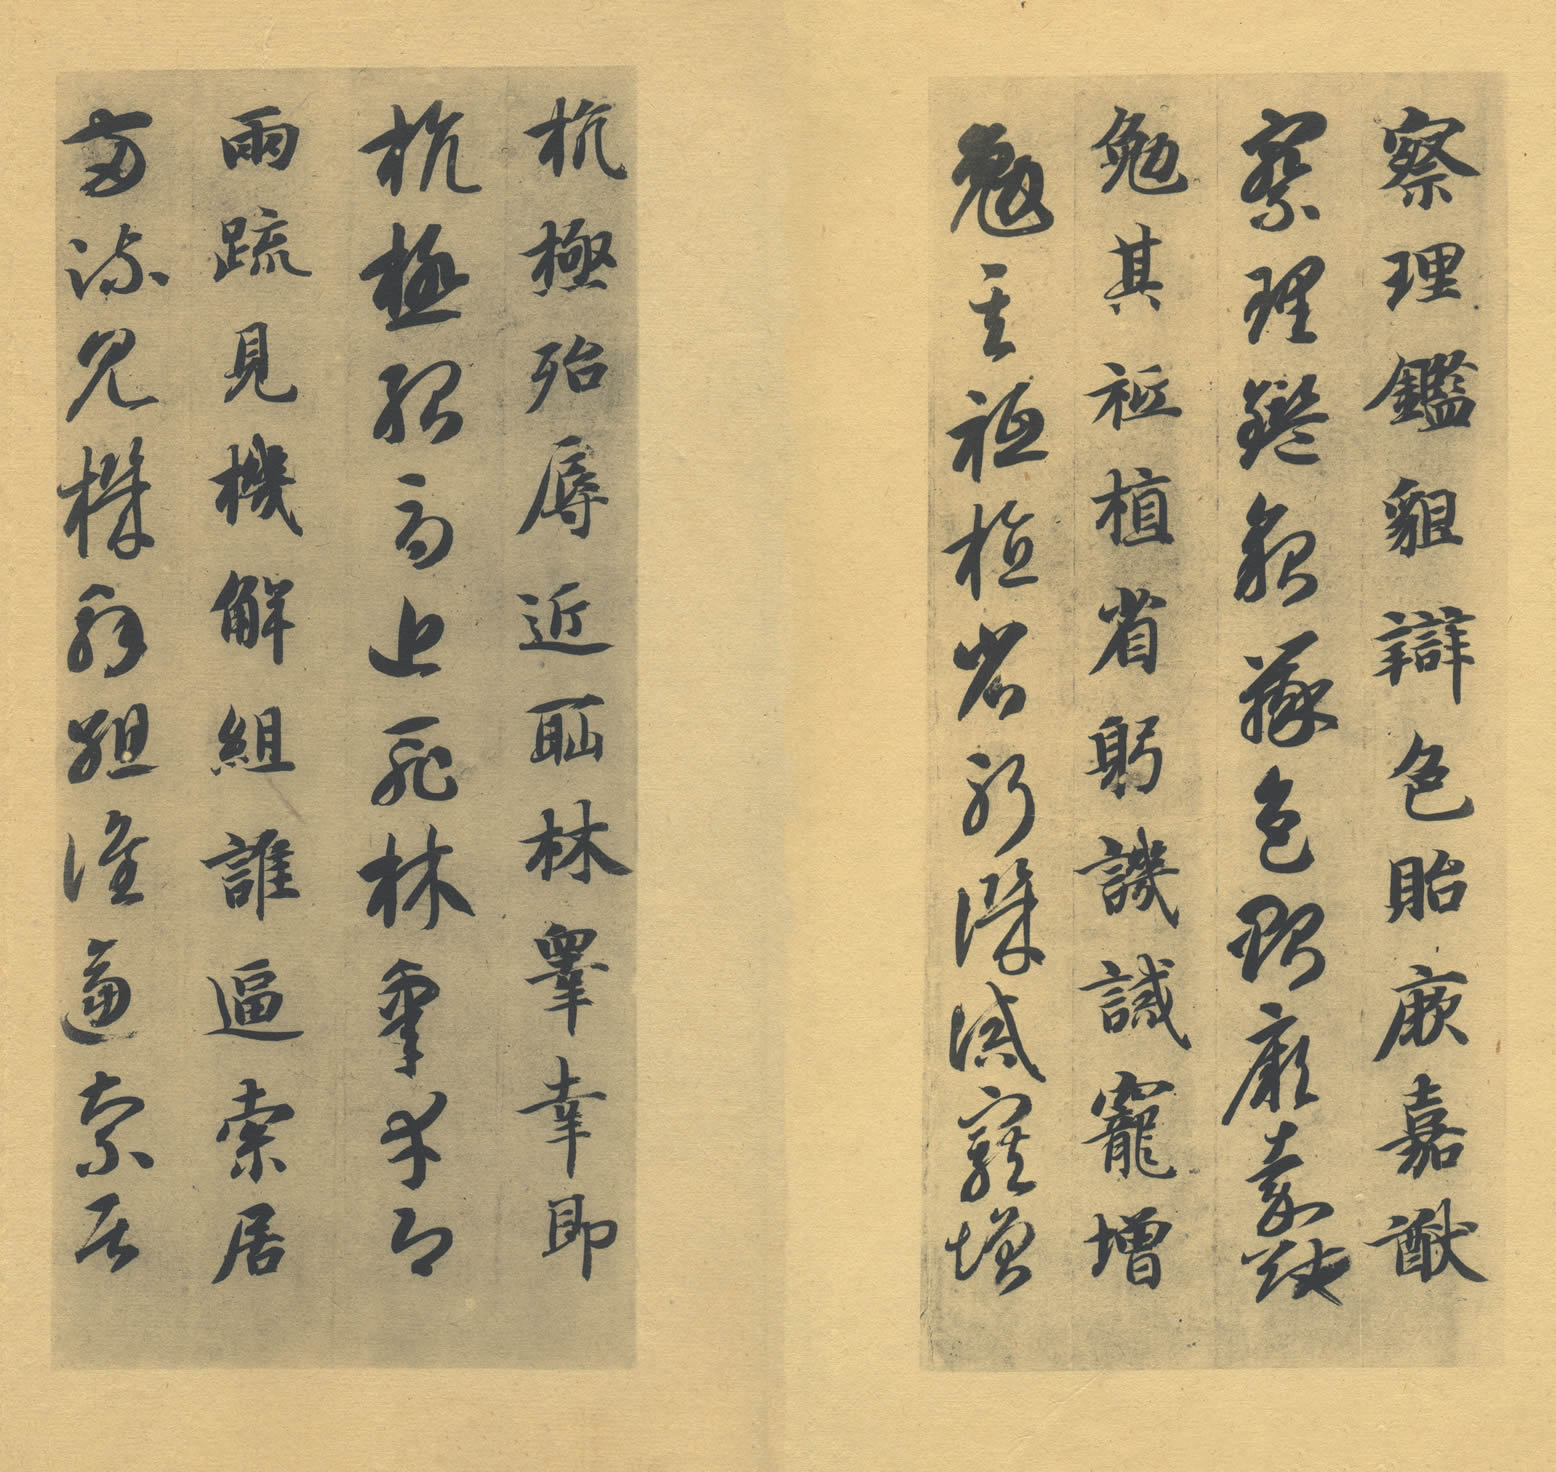 察理鑑貌辯色貽厥嘉猷
察理鑑貌辯色貽厥嘉猷
勉其祗植省躬譏誡寵增
勉其祗植省躬譏誡寵增
杭極殆辱近恥林睾幸即
杭極殆辱近恥林皋幸即
兩疏見機解組誰逼索居
兩疏見機解組誰逼索居